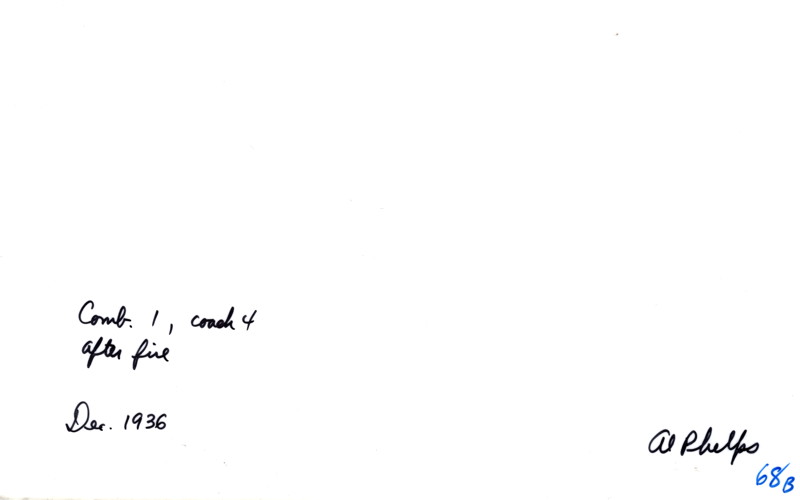 Comb. 1, coach 4
after fire
Dec. 1936
Al Phelps
68B